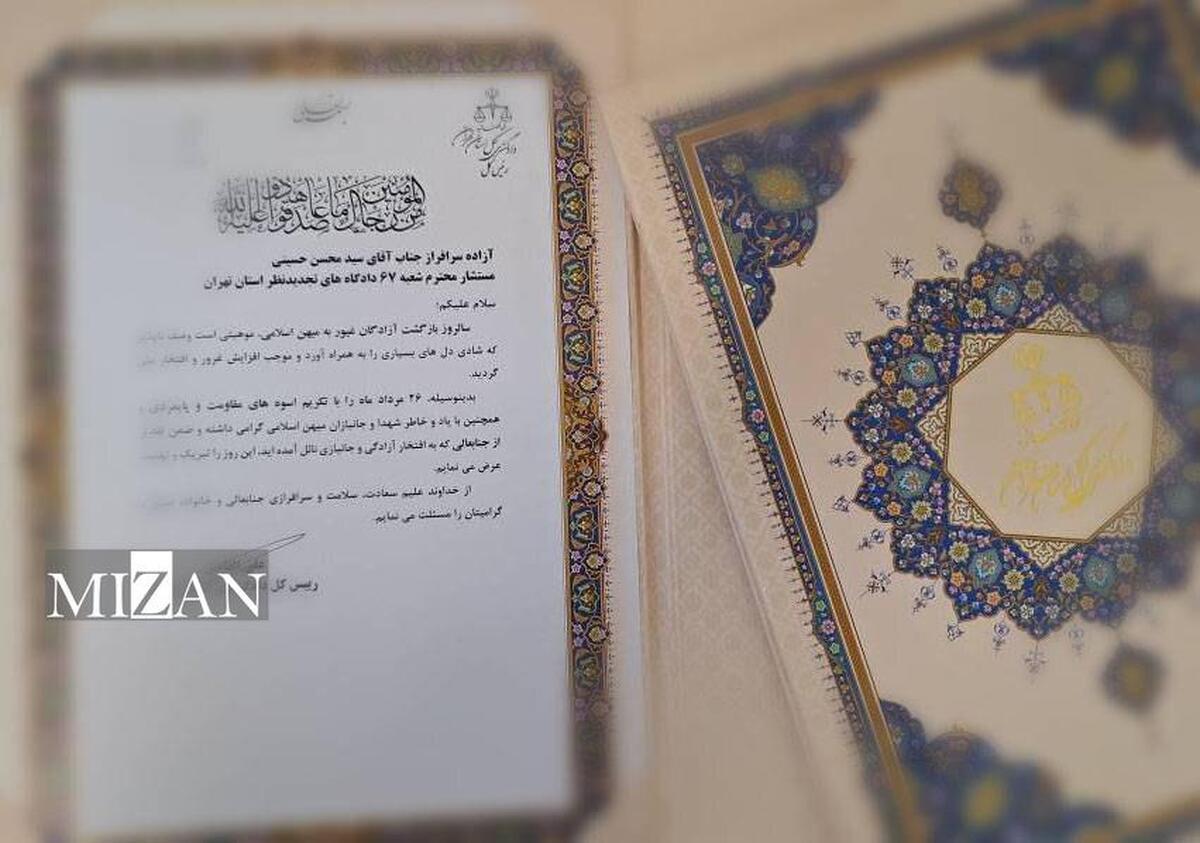 بسمه تعالی
دادگستری کل استان تهران
رئیس کل
من المؤمنین رجال صدقوا ما عاهدوا الله علیه
آزاده سرافراز جناب آقای سید محسن حسینی
مستشار محترم شعبه ۶۷ دادگاه های تجدیدنظر استان تهران
سلام علیکم؛
سالروز بازگشت آزادگان غیور به میهن اسلامی، موهبتی است وصف ناپذیر
که شادی دل های بسیاری را به همراه آورد و موجب افزایش غرور و افتخار ملی
گردید.
بدینوسیله، ۲۶ مرداد ماه را با تکریم اسوه های مقاومت و پایمردی و
همچنین با یاد و خاطر شهدا و جانبازان میهن اسلامی گرامی داشته و ضمن تقدیر
از جنابعالی که به افتخار آزادگی و جانبازی نائل آمده اید، این روز را تبریک و تهنیت
عرض می نمایم.
از خداوند علیم سعادت، سلامت و سرافرازی جنابعالی و خانواده
گرامیتان را مسئلت می نمایم.
رییس کل
MIZAN
دادگستری کل استان تهران